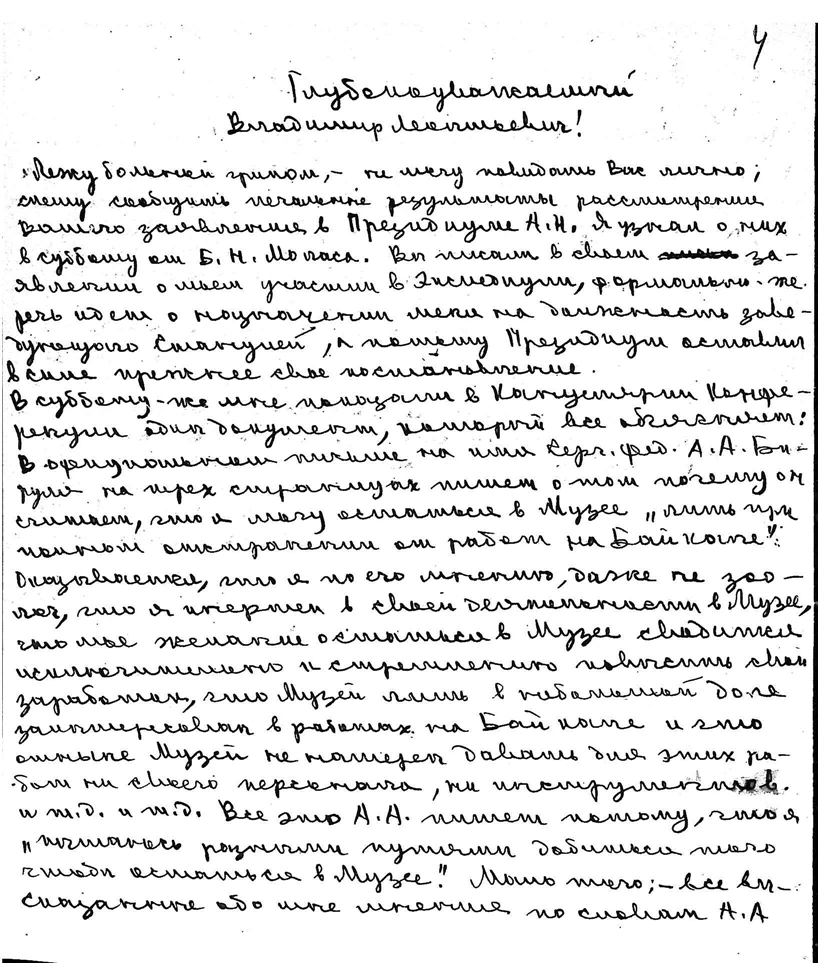 4
Глубокоуважаемый
Владимир Леонтьевич!
Лежу больной грипом, – не могу повидать Вас лично;
спешу сообщить печальные результаты рассмотрения
Вашего заявления в Президиуме А.Н. Я узнал о них
в субботу от Б. Н. Моласа. Вы писали в своем за-
явлении о моем участии в Экспедиции, формально-же
речь идет о назначении меня на должность заве-
дующего Станцией, а потому Президиум оставил
в силе прежнее свое постановление.
В субботу-же мне показали в Канцелярии Конфе-
ренции один документ, который все объясняет:
В официальном письме на имя Серг. Фед. А. А. Би-
руля на трех страницах пишет о том почему он
считает, что я могу остаться в Музее „лишь при
полном отстранении от работ на Байкале":
Оказывается, что я по его мнению, даже не зоо-
лог, что я инертен в своей деятельности в Музее,
что мое желание остаться в Музее сводится
исключительно к стремлению повысить свой
заработок, что Музей лишь в небольшой доле
заинтересован в работах на Байкале и что
отныне Музей не намерен давать для этих ра-
бот ни своего персонала, ни инструментов.
и т.д. и т.д. Все это А.А. пишет потому, что я
„пытаюсь разными путями добиться того
чтобы остаться в Музее". Мало того; – все вы-
сказанное обо мне мнение по словам А.А